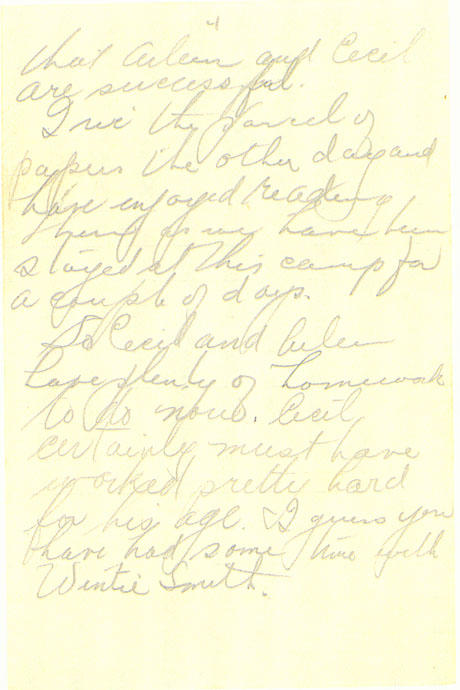 4
that Aileen and Cecil
are successful.
I rec the parcel of
papers the other day and
have enjoyed reading
them as we have been
stayed at this camp for
a couple of days.
So Cecil and Aileen
have plenty of homework
to do now. Cecil
certainly must have
worked pretty hard
for his age. I guess you
have had some time with
Wintie Smith.